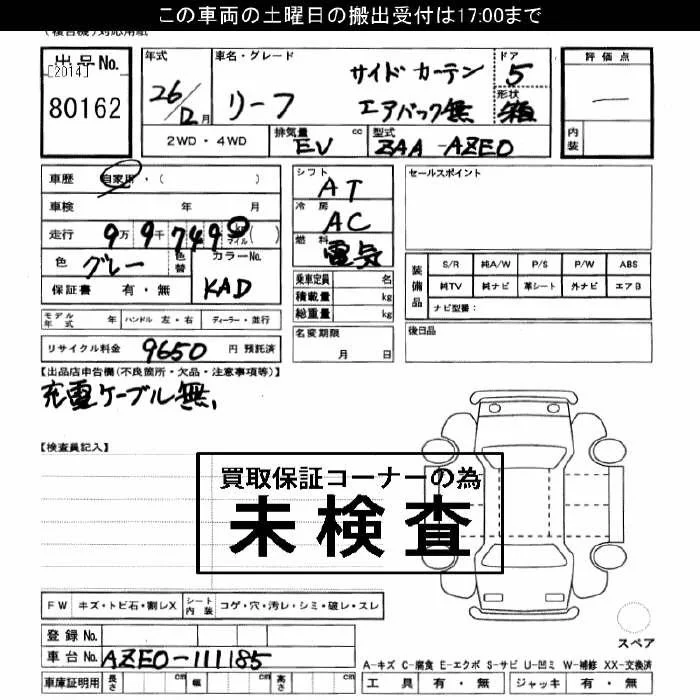 この車両の土曜日の搬出受付は17:00まで
(複合機)対応用紙
出品No. [2014] 80162
年式 26/12月
車名・グレード リーフ サイドカーテンエアバック無
ドア 5
形状 箱
評価点 —
内装
2WD・4WD
排気量 EV cc
型式 ZAA-AZE0
車歴 自家用・( )
車検 年 月
走行 9万9千749 km マイル ( )
色 グレー 色替 カラーNo. KAD
保証書 有・無
シフト AT
冷房 AC
燃料 電気
乗車定員 名
積載量 kg
総重量 kg
セールスポイント
装備品 S/R 純A/W P/S P/W ABS
純TV 純ナビ 革シート 外ナビ エアB
ナビ型番:
モデル年式 年 ハンドル 左・右 ディーラー・並行
名変期限 月 日
後日品
リサイクル料金 9650 円 預託済
【出品店申告欄(不良箇所・欠品・注意事項等)】
充電ケーブル無,
【検査員記入】
買取保証コーナーの為
未検査
FW キズ・トビ石・割レX シート内装 コゲ・穴・汚レ・シミ・破レ・スレ
登録No.
車台No. AZE0-111185
スペア
A-キズ C-腐食 E-エクボ S-サビ U-凹ミ W-補修 XX-交換済
車庫証明用 長さ cm 幅 cm 高さ cm
工具 有・無 ジャッキ 有・無